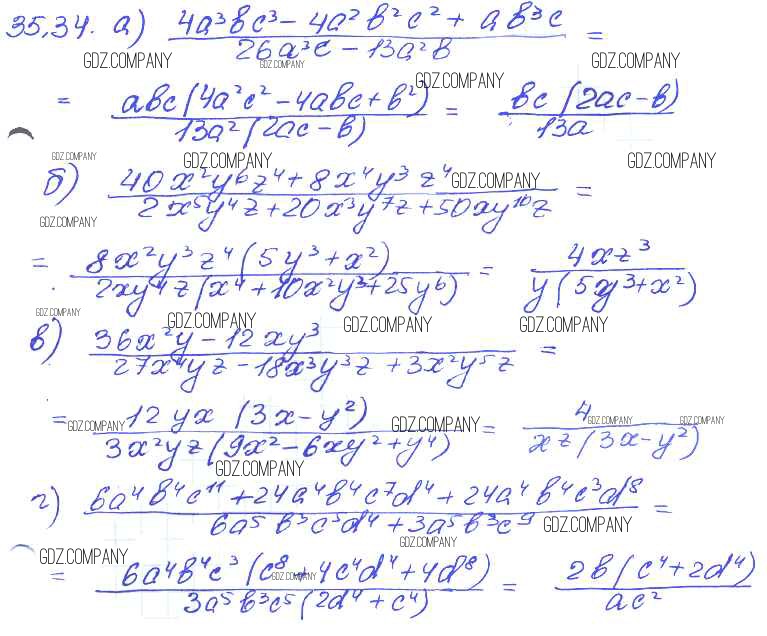 35.34. а) (4a³bc³ − 4a²b²c² + ab³c)/(26a³c − 13a²b) =
GDZ.COMPANY GDZ.COMPANY GDZ.COMPANY
GDZ.COMPANY
= abc(4a²c² − 4abc + b²)/13a²(2ac − b) = bc(2ac − b)/13a
GDZ.COMPANY GDZ.COMPANY GDZ.COMPANY
б) (40x²y⁶z⁴ + 8x⁴y³z⁴)/(2x⁵y⁴z + 20x³y⁷z + 50xy¹⁰z) =
GDZ.COMPANY
GDZ.COMPANY
= 8x²y³z⁴(5y³ + x²)/2xy⁴z(x⁴ + 10x²y³ + 25y⁶) = 4xz³/y(5y³ + x²)
GDZ.COMPANY GDZ.COMPANY GDZ.COMPANY GDZ.COMPANY
в) (36x²y − 12xy³)/(27x⁴yz − 18x³y³z + 3x²y⁵z) =
= 12yx(3x − y²)/3x²yz(9x² − 6xy² + y⁴) = 4/xz(3x − y²)
GDZ.COMPANY GDZ.COMPANY GDZ.COMPANY GDZ.COMPANY
GDZ.COMPANY
г) (6a⁴b⁴c¹¹ + 24a⁴b⁴c⁷d⁴ + 24a⁴b⁴c³d⁸)/(6a⁵b³c⁵d⁴ + 3a⁵b³c⁹) =
GDZ.COMPANY
GDZ.COMPANY GDZ.COMPANY
= 6a⁴b⁴c³(c⁸ + 4c⁴d⁴ + 4d⁸)/3a⁵b³c⁵(2d⁴ + c⁴) = 2b(c⁴ + 2d⁴)/ac²
GDZ.COMPANY